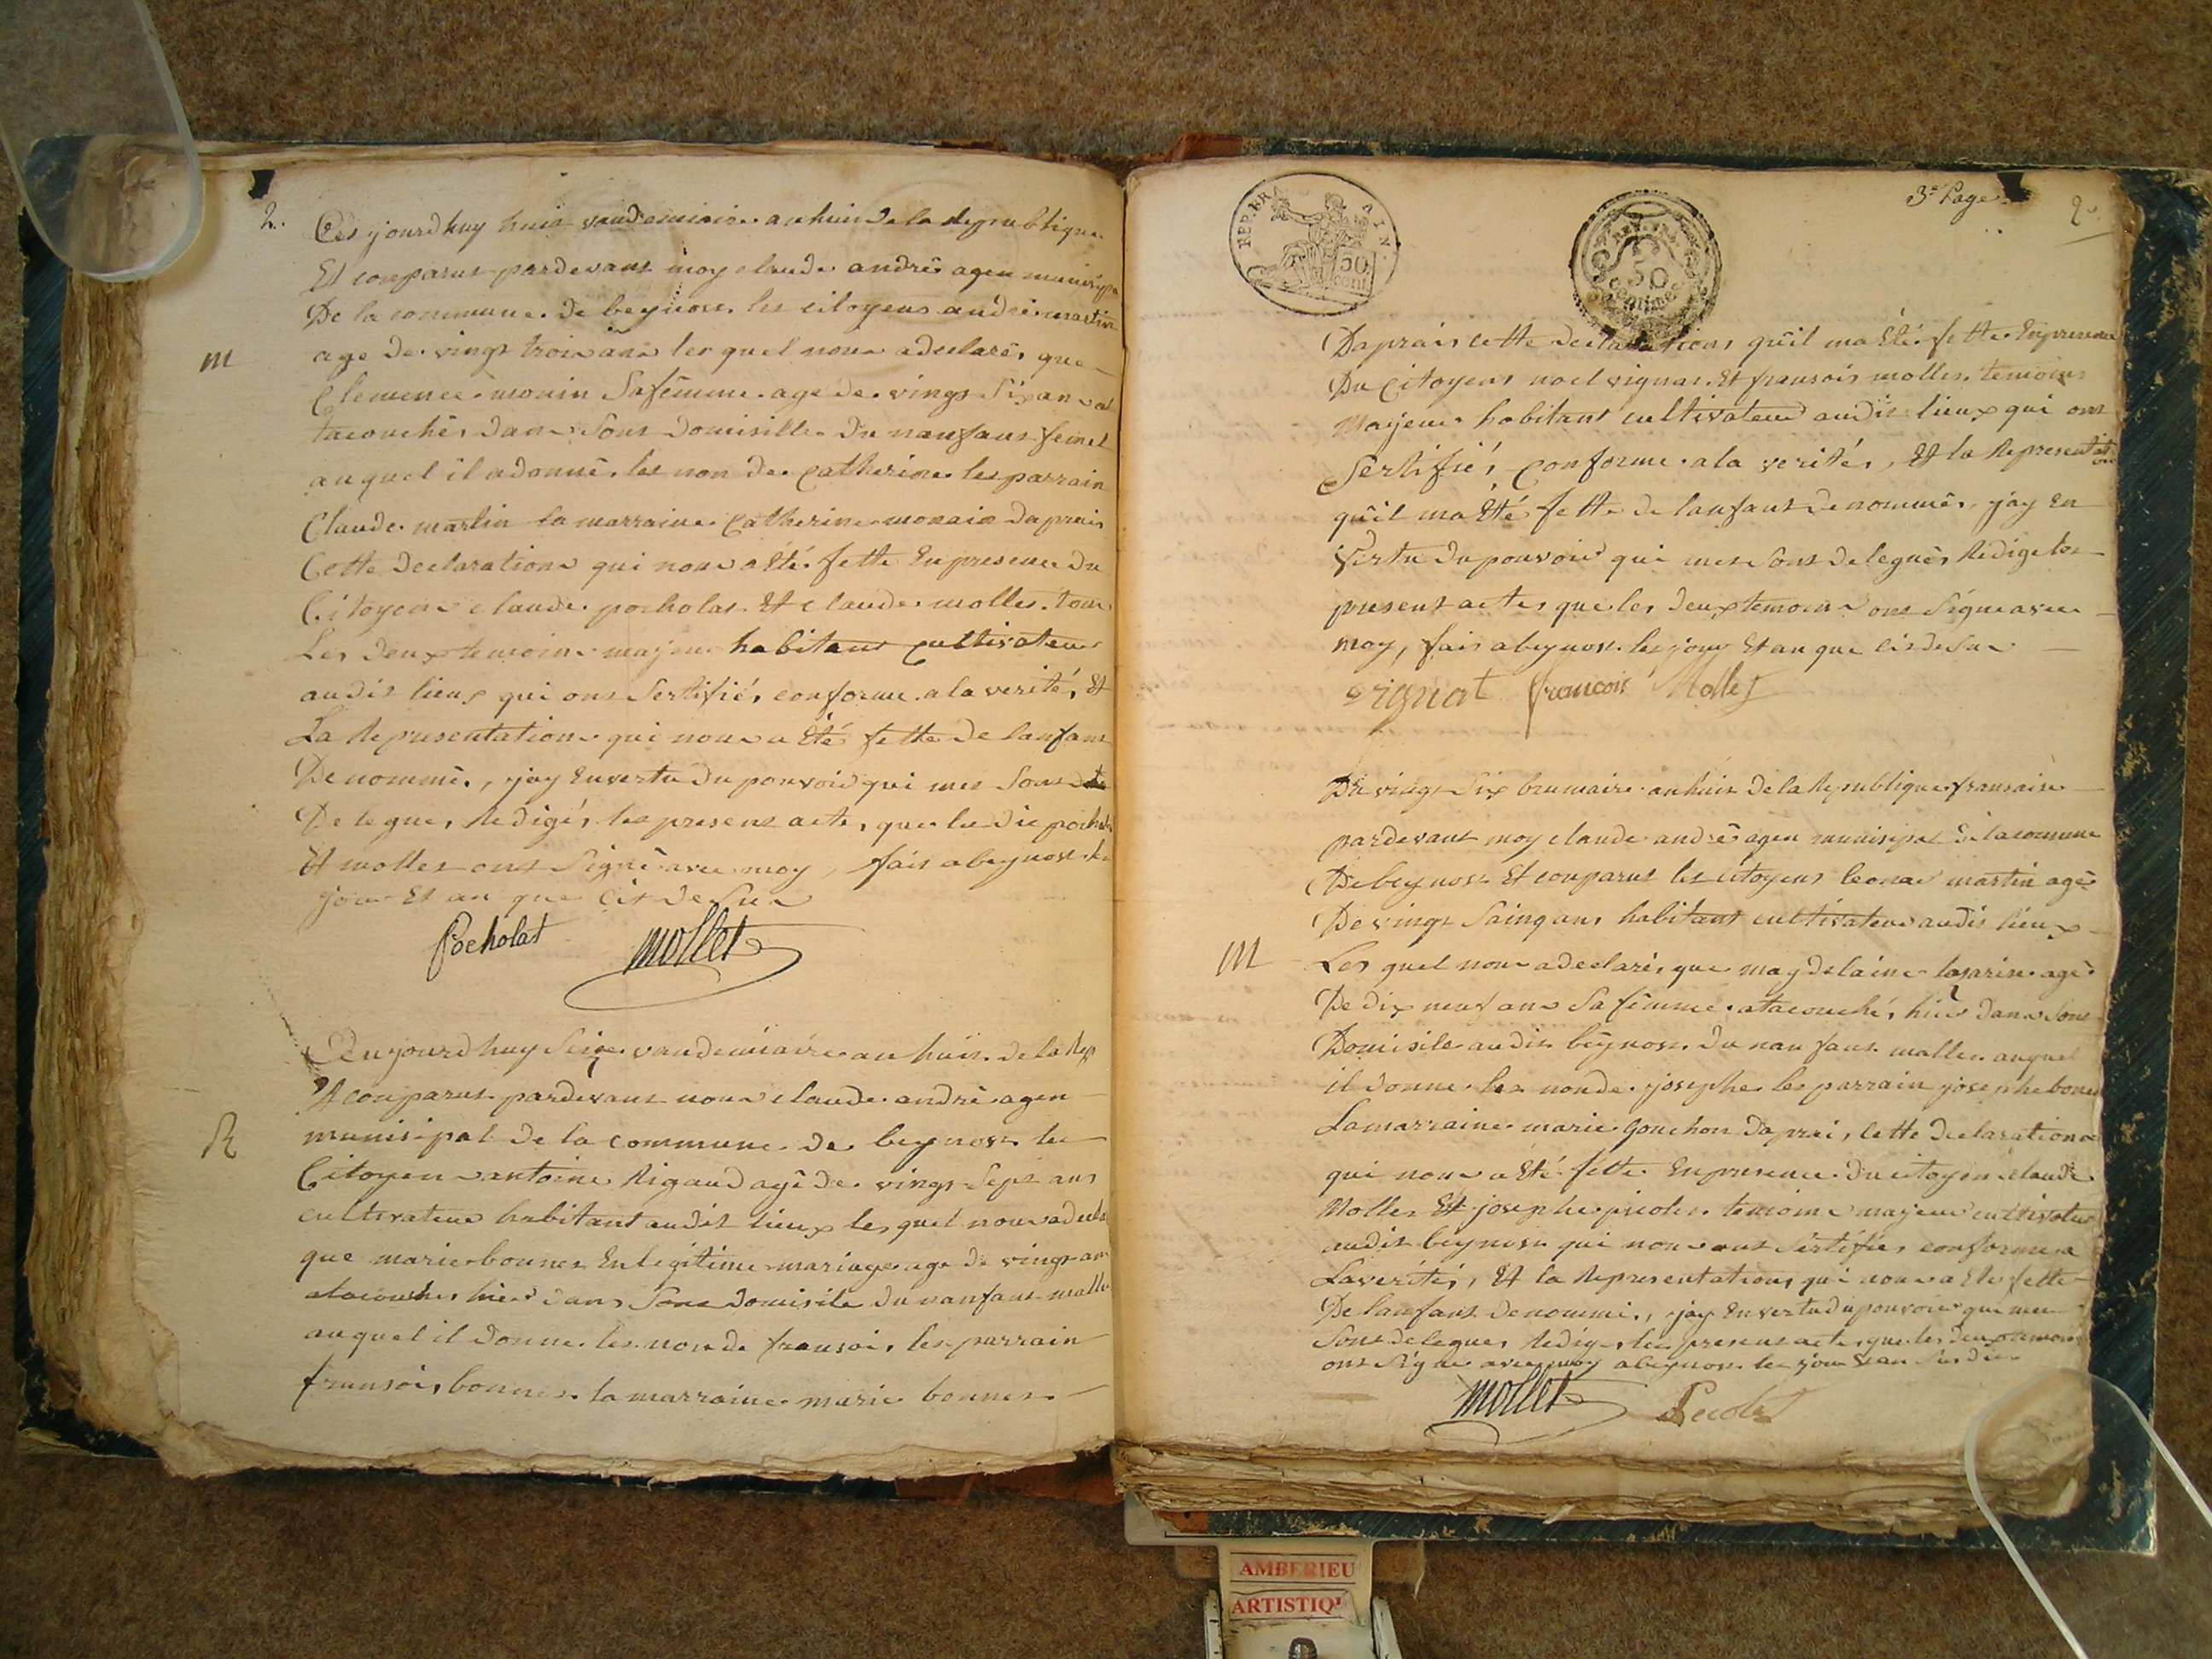 2.
Ces jourdhuy huit vandemiaire an huit de la republique
Et conparut pardevant moy claude andré agen municipa
De la commune de beynost les citoyens andré martin
m
age de vingt trois ans les quel nous a declarés que
Clemence monin sa fêmme age de vingt six ans a
tacouchés dans sont domisille du nanfant femel
auquel il a donnê les non de catherine les parrain
Claude martin la marraine catherine monin daprais
Cette declarations qui nous a Eté fette En presence du
Citoyens claude pocholat Et claude mollet tous
Les deux temoins majeur habitant cultivateur
audit lieux qui ont Sertifiés conforme a la verités Et
La Representations qui nous a Eté fette de lanfant
Denommé, jay En vertu du pouvoir qui mes sont
De legues Redigés les presens actes, que le dit pochola
Et mollet ont Signê avec moy, fait a beynost le
jour Et an que cit desus
Pocholat mollet
Ce aujourdhuy seize vandemiaire an huit de la Rep
A conparut pardevant nous claude andrê agen
R
munisipal de la commune de beynost le
Citoyen antoine Rigaud agê de vingt sept ans
cultivateur habitant audit lieux les quel nous a decla
que marie bonnet En legitime mariage age de vingt ans
atacouches hier dans sont domisile du nanfant malle
auquel il donne les non de fransois les parrain
fransois bonnet la marraine marie bonnet
REP. FRA. AIN.
50 cent.
REP. FRA.
50
centimes
3e Page
2
Daprais cette declarations quil ma Eté fette En presence
Du Citoyens noel vignat Et fransois mollet temoins
Majeur habitant cultivateur audit lieux qui ont
Sertifiés conforme a la verités, Et la Representations
quil ma Eté fette de lanfant denommés, jay En
Vertu du pouvoir qui mes sont delegués Rediges les
present actes que les deux temoins ont Signe avec
moy, fait a beynost les jour Et an que cit desus
vignat françois Mollet
Du vingt Six brumaire an huit de la Republique fransaise
pardevant moy claude andrê agen munisipal de la commune
De beynost Et conparut les citoyens leonar martin agê
De vingt Sainq ans habitant cultivateur audit lieux
M
Les quel nous a declarés que magdelaine lagarine agê
De dix neuf ans Sa fêmme atacouché, hier dans sont
Domisile audit beynost du nanfant malle auquel
il donne les non de josephe les parrain josephe bonet
La marraine marie gouchon daprai, cette declarations
qui nous a Eté fette En presence du citoyen claude
Mollet Et josephe picolet temoins majeur cultivateur
audit beynost qui nous ont Sertifiés conforme a
La verités, Et la Representations qui nous a Eté fette
De lanfant denommé, jay En vertu du pouvoir qui mes
Sont delegues Rediges les present actes que les deux temoins
ont Signe avec moy a beynost les jour Et an susdit
mollet Picolet
AMBERIEU
ARTISTIQ